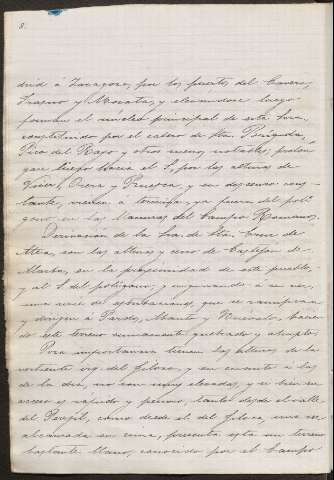 8.
drid á Zaragoza, por los puertos del Cavero,
Frasno y Morata, y elevandose luego
forman el núcleo principal de esta Sierra,
constituido por el cabezo de Sta. Brigida,
Pico del Rayo y otros menos notables, prolon
gase luego hacia el S. por las alturas de
y en descenso cons-
tante, vienen á terminar, ya fuera del polí
gono, en las llanuras del Campo Romanos.
Derivacion de la Sra. de Sta. Cruz de
son las alturas y cerro de Castejon de
en la proximidad de este pueblo,
y al S. del poligono; y originando á su vez,
una serie de estribaciones, que se ramifican
y dirigen á Pardos, y hacien
do este terreno sumamente quebrado y
Poca importancia tienen las alturas de la
vertiente izq. del Jiloca, y en cuanto á las
de la dra. no son muy elevadas, y si bien su
acceso es rapido y penoso, tanto desde el valle
del como desde el del Jiloca, una vez
alcanzada su cima, presenta esta un terreno
bastante llano, conocido por el Campo